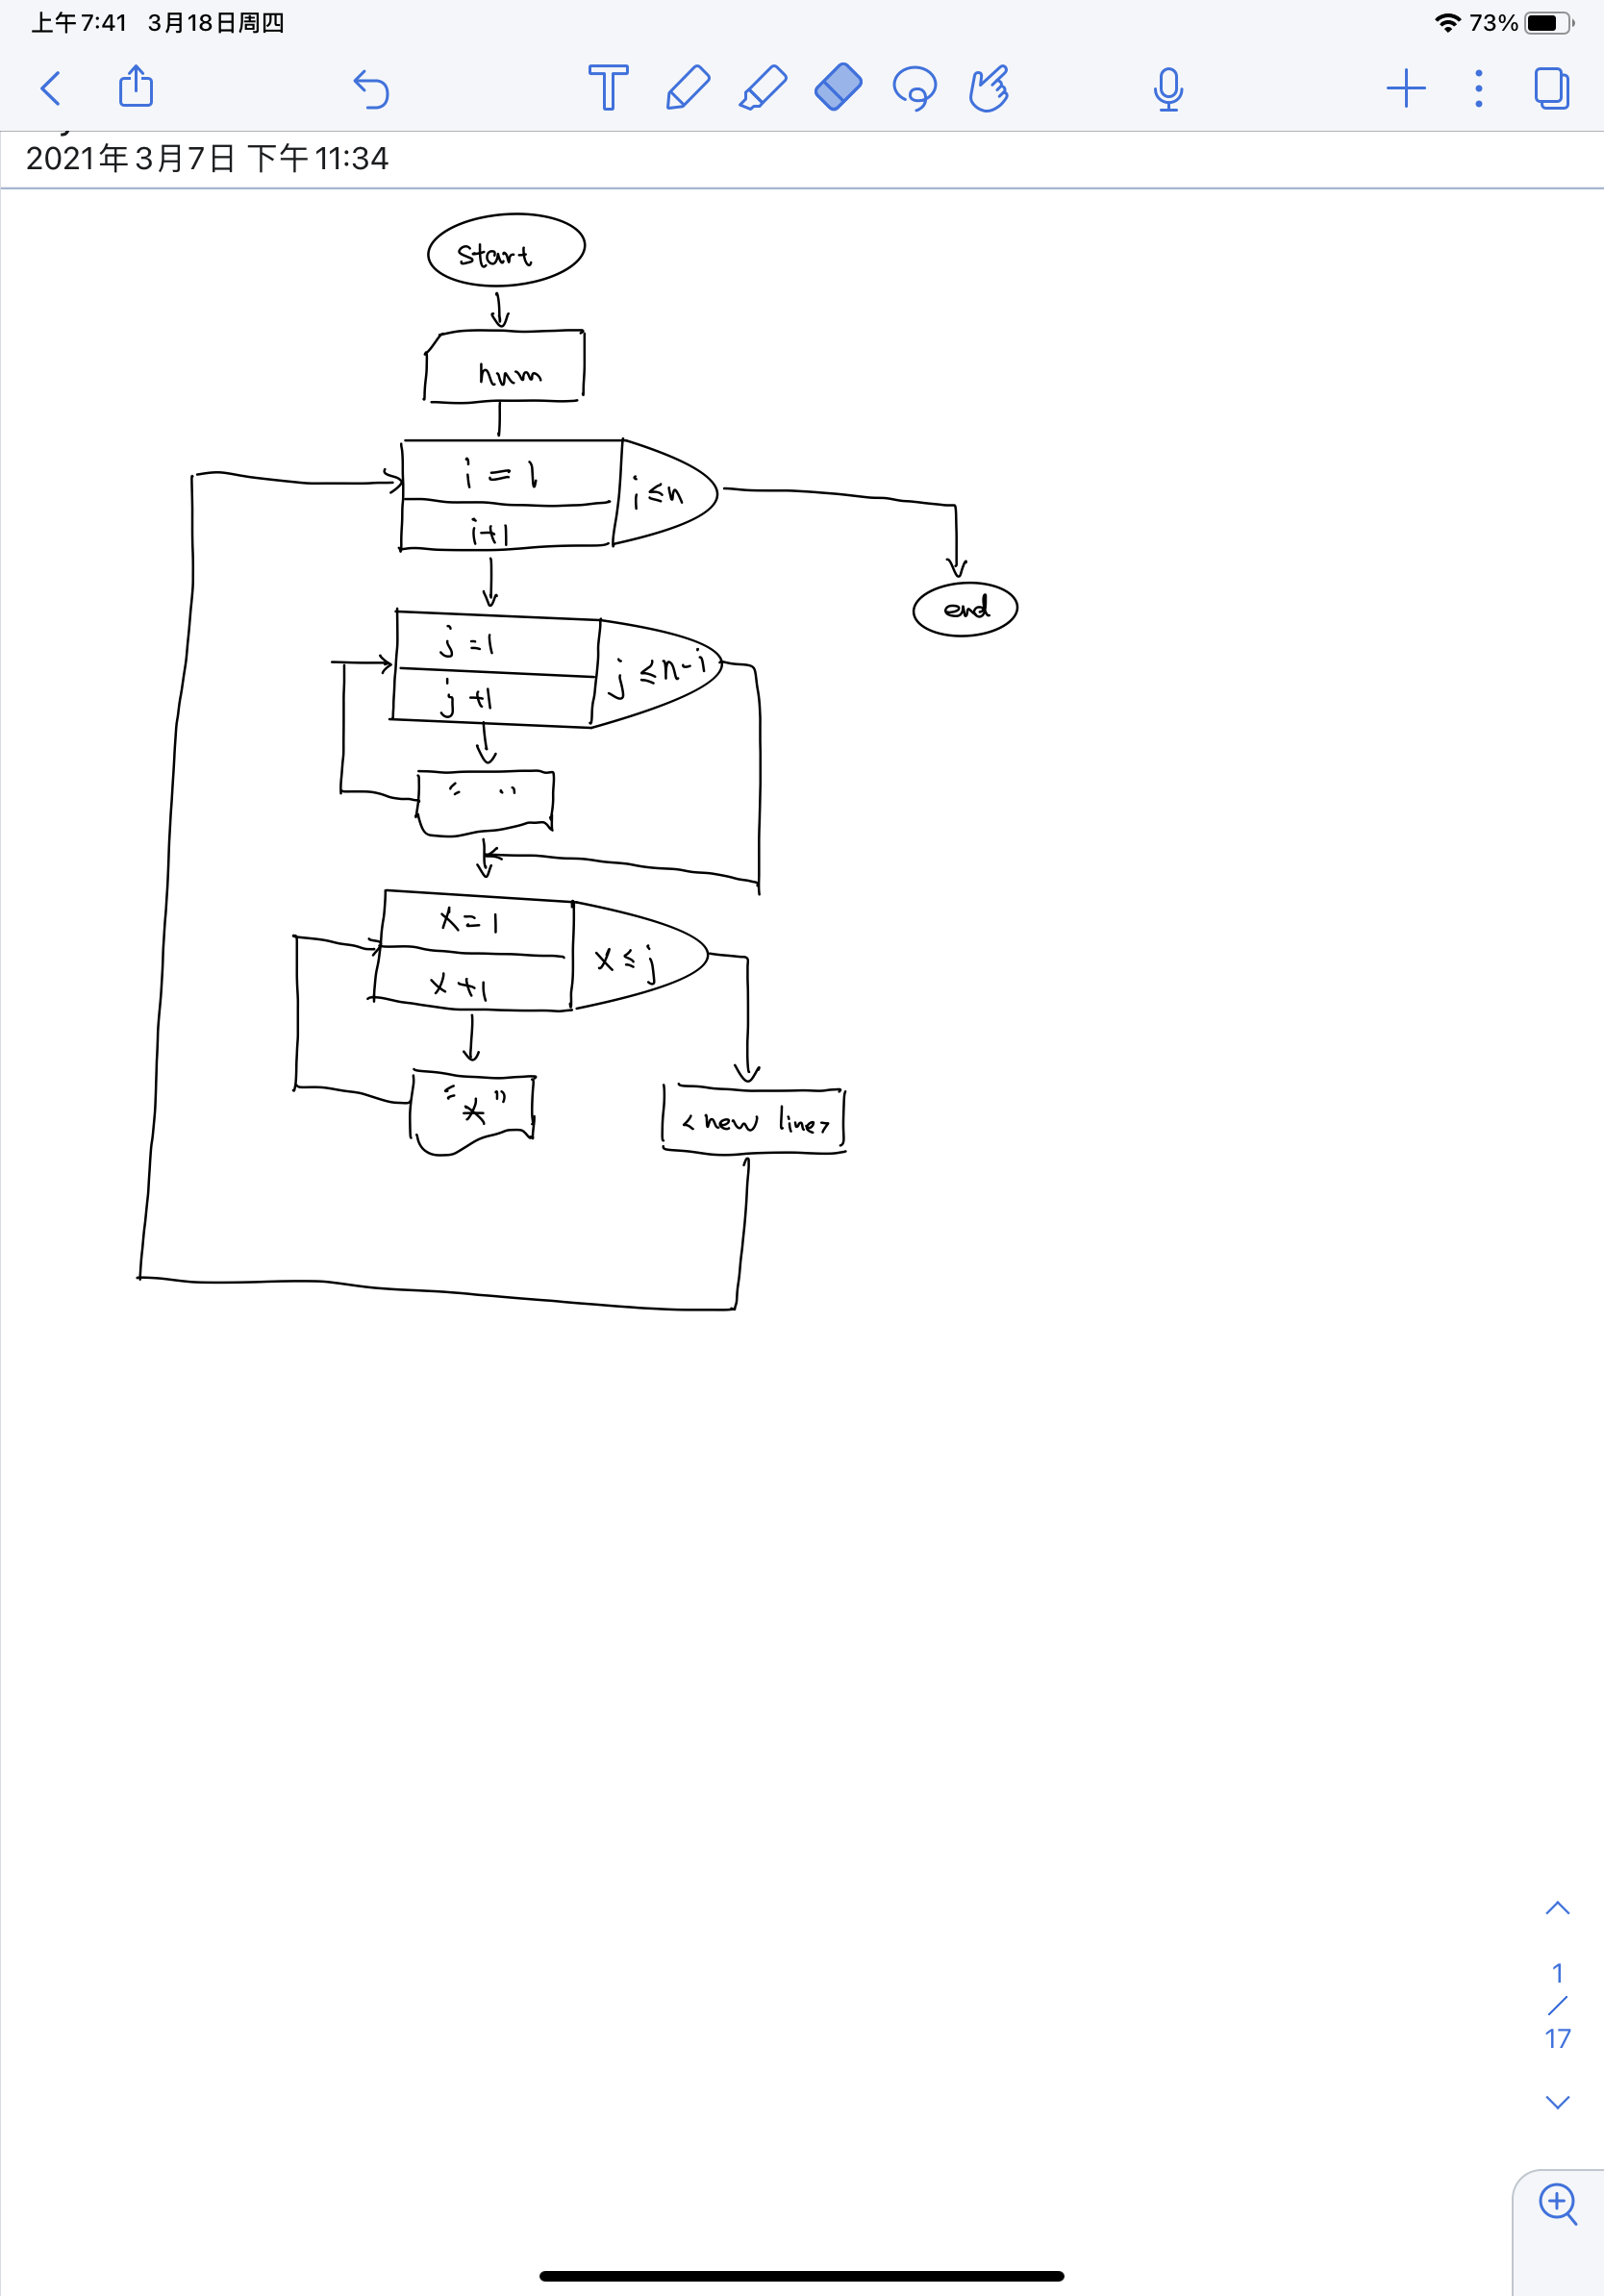 上午7:41 3月18日周四
73%
2021年3月7日 下午11:34
start
num
i = 1
i ≤ n
i+1
end
j = 1
j ≤ n-i
j +1
“ ”
x = 1
x ≤ j
x +1
“*”
<new line>
1
/
17